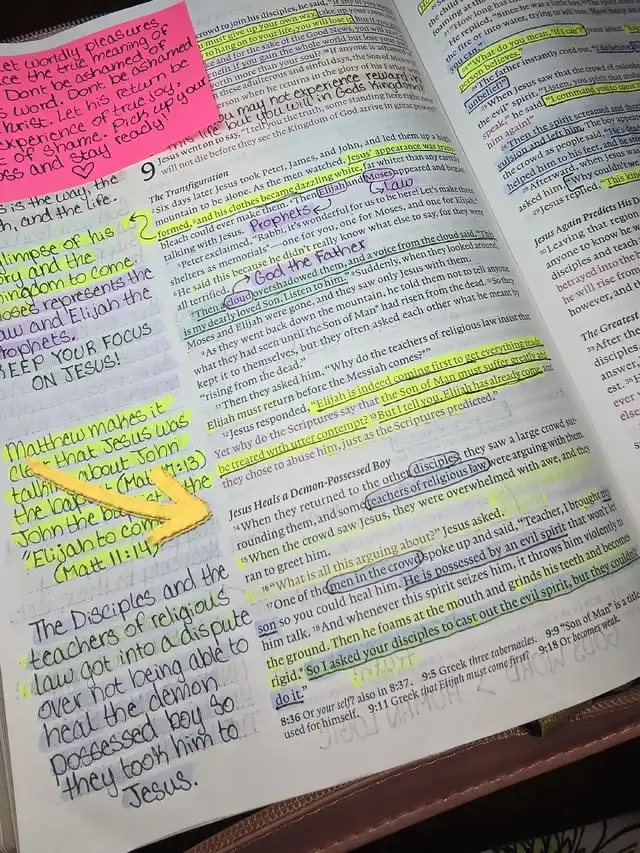 Let worldly pleasures
the true meaning of
Dont be ashamed of
s word. Dont be ashamed
hrist. Let his return be
experience of true joy,
t of shame. Pick up your
oss and stay
ready!
s is the way, the
h, and the life.
limpse of his
ory and the
ingdom to come.
oses represents the
aw and Elijah the
Prophets.
KEEP YOUR FOCUS
ON JESUS!
Matthew makes it
that Jesus was
talking about John
the (Mat 17:13)
John the the
"Elijah to com
(Matt 11:14)
The Disciples and the
teachers of religious
law got into a dispute
over not being able to
heal the demon
possessed boy so
they took him to
Jesus.
crowd to join his disciples, he said, "If any of you
must give up your own way, take up
to hang on to your life, you will lose it. But if
and for the sake of the Good News, you will
efit if you gain the whole world but lose your
orth more than your soul? If anyone is ashamed
adulterous and sinful days, the Son of Man
person when he returns in the glory of his Father
may not experience reward in
this life but you will in Gods Kingdom!
Jesus went on to say, "I tell you the truth, some standing here right now
will not die before they see the Kingdom of God arrive in great power!"
9
The Transfiguration
²Six days later Jesus took Peter, James, and John, and led them up a high
mountain to be alone. As the men watched, Jesus' appearance was trans-
formed, ³and his clothes became dazzling white, far whiter than any earthly
bleach could ever make them. ⁴Then Elijah and Moses appeared and began
talking with Jesus.
Prophets
Law
⁵Peter exclaimed, "Rabbi, it's wonderful for us to be here! Let's make three
shelters as memorials—one for you, one for Moses, and one for Elijah."
⁶He said this because he didn't really know what else to say, for they were
all terrified.
God the Father
⁷Then a cloud overshadowed them, and a voice from the cloud said, "This
is my dearly loved Son. Listen to him." ⁸Suddenly, when they looked around,
Moses and Elijah were gone, and they saw only Jesus with them.
⁹As they went back down the mountain, he told them not to tell anyone
what they had seen until the Son of Man* had risen from the dead. ¹⁰So they
kept it to themselves, but they often asked each other what he meant by
"rising from the dead."
¹¹Then they asked him, "Why do the teachers of religious law insist that
Elijah must return before the Messiah comes?"
¹²Jesus responded, "Elijah is indeed coming first to get everything ready.
Yet why do the Scriptures say that the Son of Man must suffer greatly and
be treated with utter contempt? ¹³But I tell you, Elijah has already come, and
they chose to abuse him, just as the Scriptures predicted."
Jesus Heals a Demon-Possessed Boy
¹⁴When they returned to the other disciples, they saw a large crowd sur-
rounding them, and some teachers of religious law were arguing with them.
¹⁵When the crowd saw Jesus, they were overwhelmed with awe, and they
ran to greet him.
¹⁶"What is all this arguing about?" Jesus asked.
¹⁷One of the men in the crowd spoke up and said, "Teacher, I brought my
son so you could heal him. He is possessed by an evil spirit that won't let
him talk. ¹⁸And whenever this spirit seizes him, it throws him violently to
the ground. Then he foams at the mouth and grinds his teeth and becomes
rigid. So I asked your disciples to cast out the evil spirit, but they couldn't
do it."
8:36 Or your self? also in 8:37. 9:5 Greek three tabernacles. 9:9 "Son of Man" is a title
used for himself. 9:11 Greek that Elijah must come first? 9:18 Or becomes weak.
He replied, "Since he was a little boy.
the fire or into water, trying to kill
"What do you mean, 'If I can'?"
person believes."
²⁴The father instantly cried out,
unbelief!"
²⁵When Jesus saw that the crowd of
the evil spirit. "Listen, you spirit that
speak," he said. "I command you to come
him again
²⁶Then the spirit screamed and
vulsion and left him. The boy appeared
the crowd as people said, "He's
helped him to his feet, and he
²⁸Afterward, when Jesus was
asked him, "Why couldn't we
²⁹Jesus replied, "This kin
Jesus Again Predicts His
³⁰Leaving that region
anyone to know he
disciples and teach
betrayed into the
he will rise from
however, and th
The Greatest
³³After they
disciples,